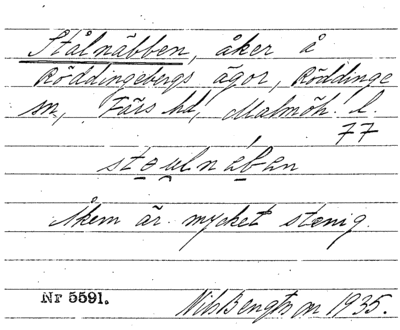 Stålnäbben, åker å
Röddingebergs ägor, Röddinge
sn, Färs hd, Malmöh. l.
77
stoulnɛbɛn
Åkern är mycket stenig.
Nr 5591.
Nils Bengtsson 1935.